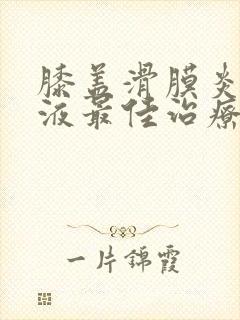 膝盖滑膜炎
液最佳治疗
一片锦霞